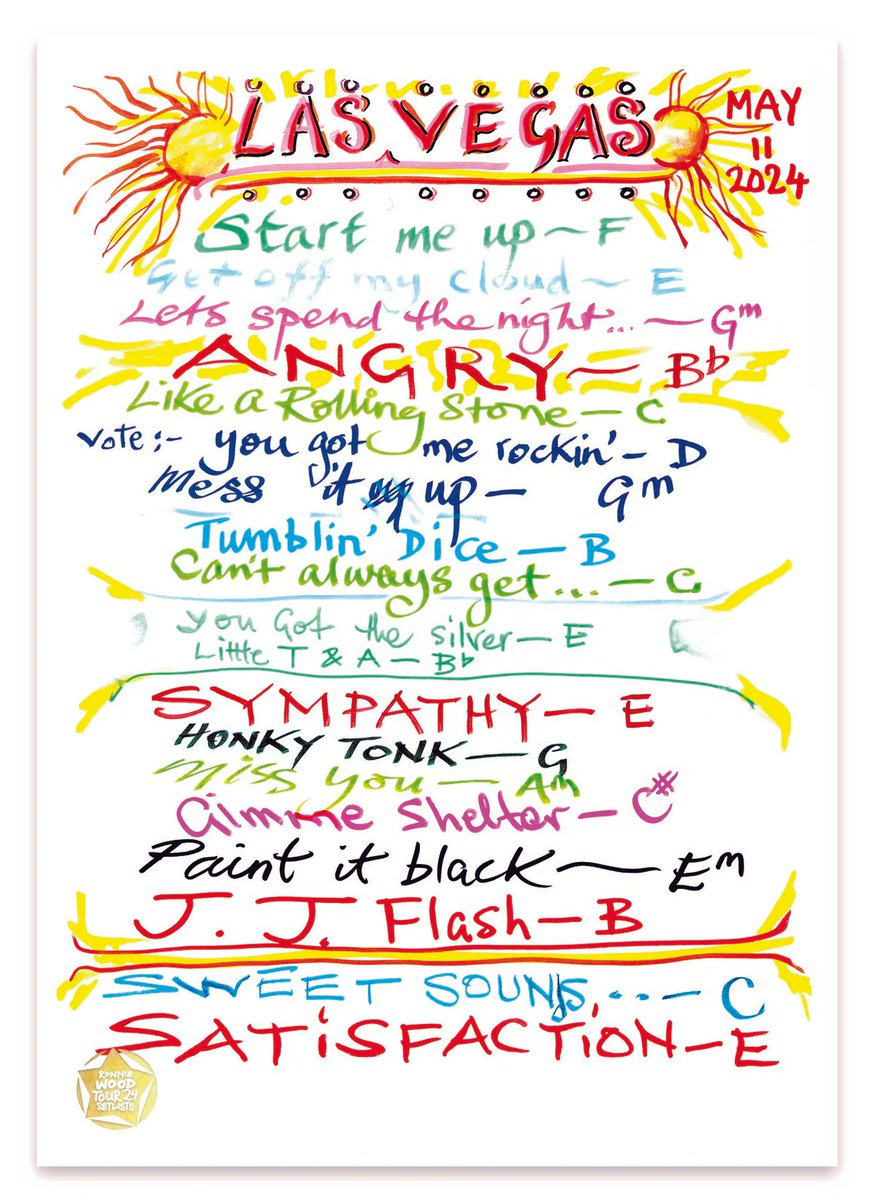 LAS VEGAS
MAY
11
2024
Start me up ~ F
Get off my cloud ~ E
Lets spend the night... ~ Gm
ANGRY ~ B♭
Like a Rolling Stone — C
Vote:- you got me rockin' — D
Mess it up — Gm
Tumblin' Dice — B
Can't always get... — C
You Got the silver — E
Little T & A — B♭
SYMPATHY — E
HONKY TONK — G
Miss you — Am
Gimme Shelter — C#
Paint it black ~ Em
J. J. Flash — B
SWEET SOUNDS... — C
SATiSFACTiON — E
RONNIE
WOOD
TOUR '24
SETLISTS